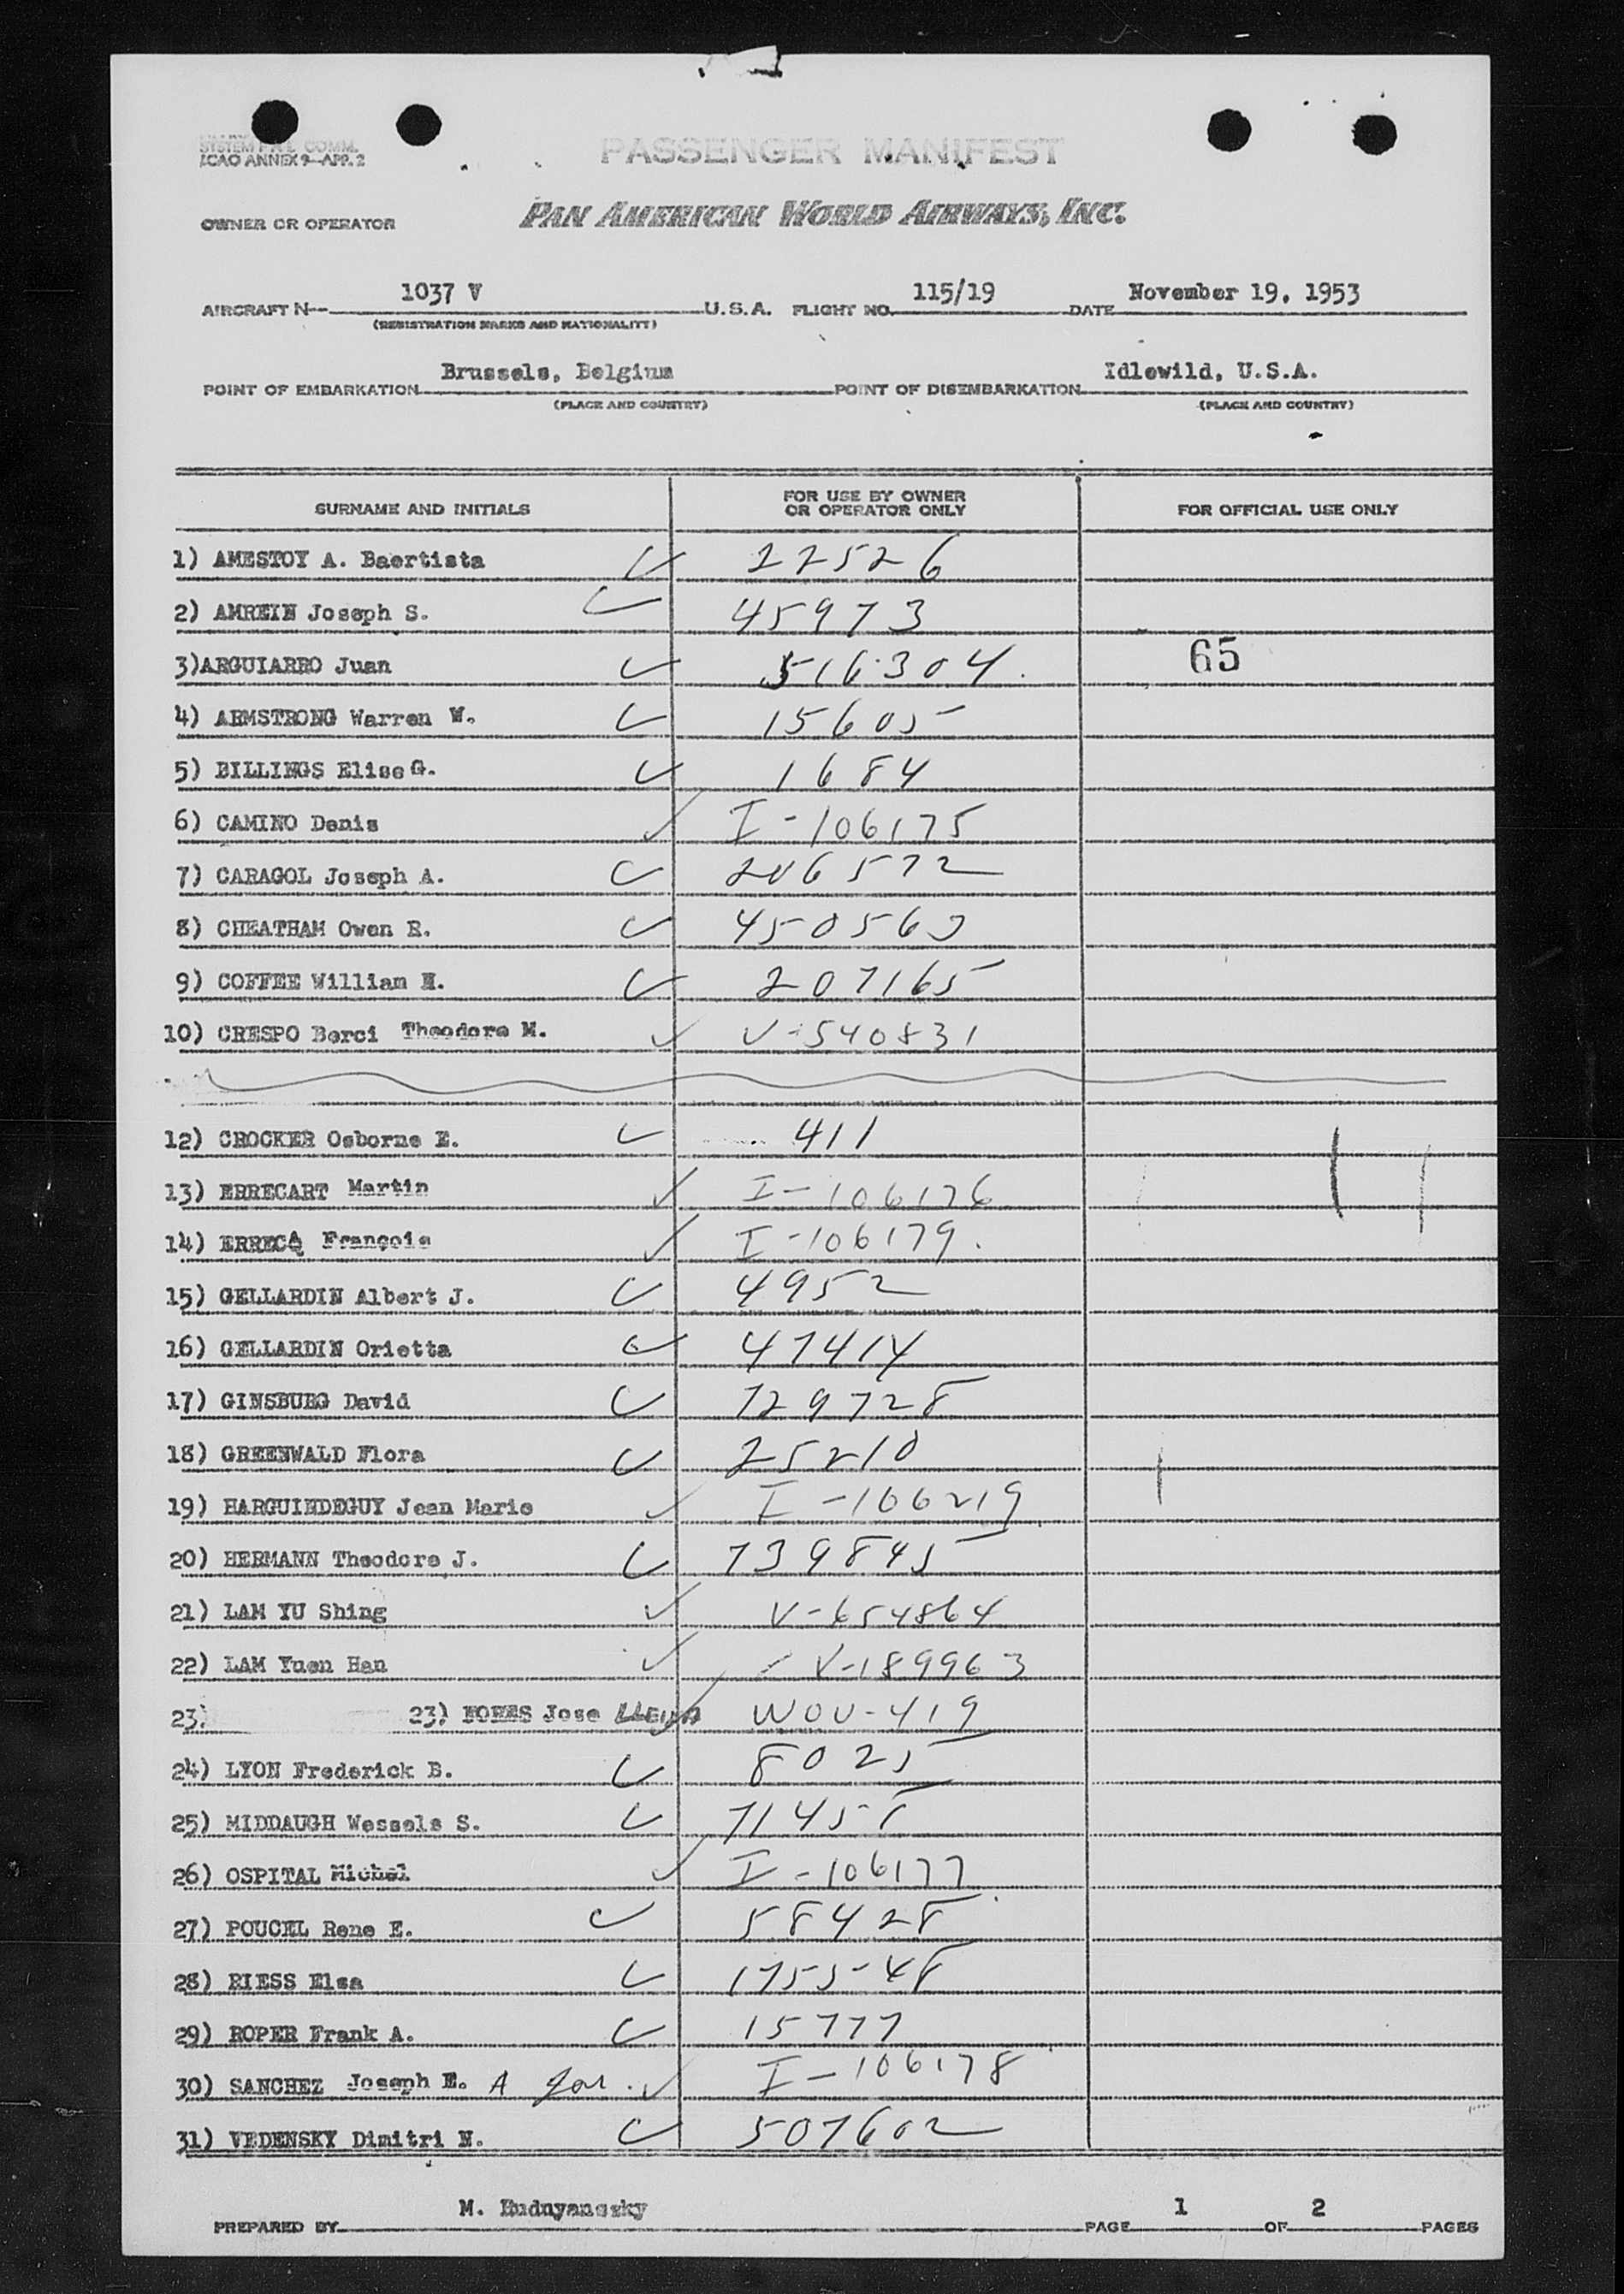 SYSTEM COMM.
ICAO ANNEX 9—APP. 2
PASSENGER MANIFEST
OWNER OR OPERATOR PAN AMERICAN WORLD AIRWAYS, INC.
AIRCRAFT N-- 1037 V U.S.A. FLIGHT NO. 115/19 DATE November 19, 1953
(REGISTRATION MARKS AND NATIONALITY)
POINT OF EMBARKATION Brussels, Belgium POINT OF DISEMBARKATION Idlewild, U.S.A.
(PLACE AND COUNTRY) (PLACE AND COUNTRY)
SURNAME AND INITIALS FOR USE BY OWNER OR OPERATOR ONLY FOR OFFICIAL USE ONLY
1) AMESTOY A. Baertista 22526
2) AMREIN Joseph S. 45973
3)ARGUIARRO Juan 516304 65
4) ARMSTRONG Warren W. 15605
5) BILLINGS Elise G. 1684
6) CAMINO Denis I-106175
7) CARAGOL Joseph A. 206572
8) CHEATHAM Owen R. 450563
9) COFFEE William H. 207165
10) CRESPO Berci Theodore M. V-540831
12) CROCKER Osborne E. 411
13) ERRECART Martin I-106176
14) ERRECA François I-106179.
15) GELLARDIN Albert J. 4952
16) GELLARDIN Orietta 47414
17) GINSBURG David 729728
18) GREENWALD Flora 25210
19) HARGUINDEGUY Jean Marie I-106219
20) HERMANN Theodore J. 739845
21) LAM YU Shing V-654864
22) LAM Yuen Han V-189963
23) 23) Jose WOU-419
24) LYON Frederick B. 8025
25) MIDDAUGH Wessels S.
26) OSPITAL Michel I-106177
27) POUCEL Rene E. 58428
28) RIESS Elsa 175548
29) ROPER Frank A. 15777
30) SANCHEZ Joseph E. A I-106178
31) VEDENSKY Dimitri N. 507602
PREPARED BY M. Hudnyanszky PAGE 1 OF 2 PAGES